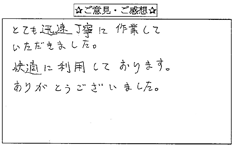 ☆ご意見・ご感想☆
とても迅速丁寧に作業して
いただきました。
快適に利用しております。
ありがとうございました。